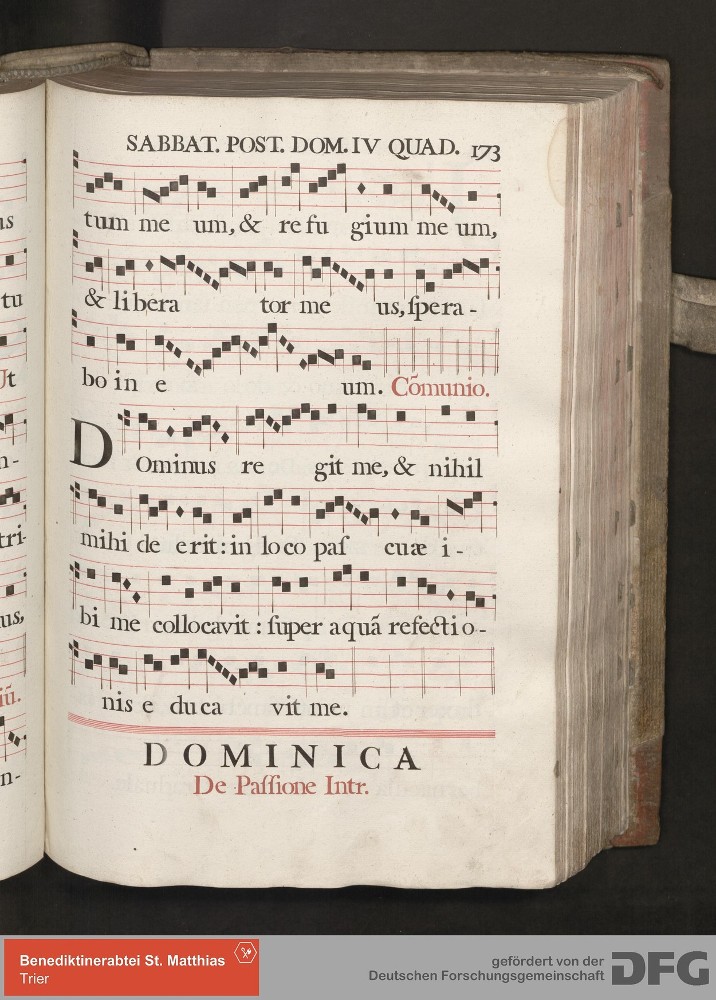 SABBAT. POST. DOM. IV QUAD. 173
tum me um, & refu gium me um,
& libera tor me us, ſpera-
bo in e um. Cõmunio.
Dominus re git me, & nihil
mihi de erit: in loco paſ cuæ i-
bi me collocavit: ſuper aquã refectio-
nis e duca vit me.
DOMINICA
De Paſſione Intr.
is
tu
Ut
n-
tri-
us,
iũ.
n-
Benediktinerabtei St. Matthias
Trier
gefördert von der
Deutschen Forschungsgemeinschaft
DFG